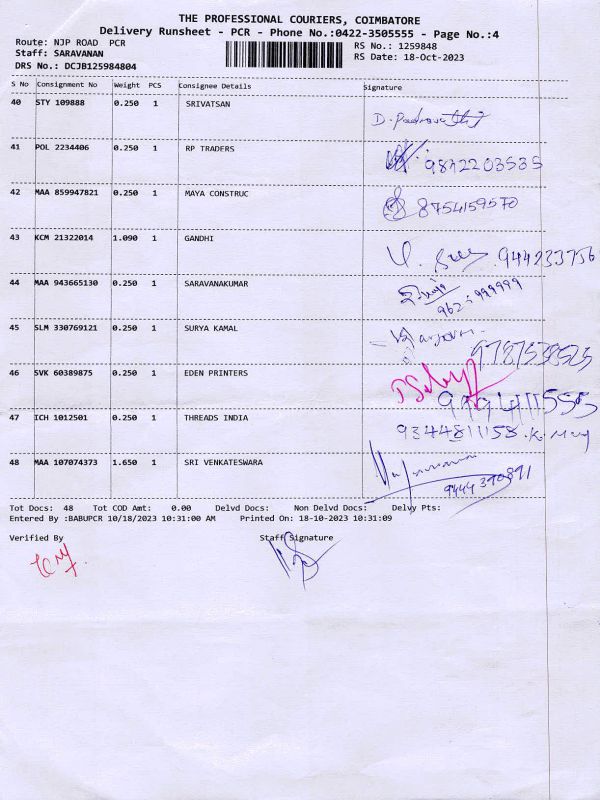 THE PROFESSIONAL COURIERS, COIMBATORE
Delivery Runsheet - PCR - Phone No.:0422-3505555 - Page No.:4
Route: NJP ROAD PCR
RS No.: 1259848
Staff: SARAVANAN
RS Date: 18-Oct-2023
DRS No.: DCJB125984804
S No Consignment No Weight PCS Consignee Details Signature
40 STY 109888 0.250 1 SRIVATSAN
41 POL 2234406 0.250 1 RP TRADERS 9842203535
42 MAA 859947821 0.250 1 MAYA CONSTRUC 8754159570
43 KCM 21322014 1.090 1 GANDHI 944233756
44 MAA 943665130 0.250 1 SARAVANAKUMAR
45 SLM 330769121 0.250 1 SURYA KAMAL
46 SVK 60389875 0.250 1 EDEN PRINTERS
47 ICH 1012501 0.250 1 THREADS INDIA 9344811158
48 MAA 107074373 1.650 1 SRI VENKATESWARA
Tot Docs: 48 Tot COD Amt: 0.00 Delvd Docs: Non Delvd Docs: Delvy Pts:
Entered By :BABUPCR 10/18/2023 10:31:00 AM Printed On: 18-10-2023 10:31:09
Verified By Staff Signature